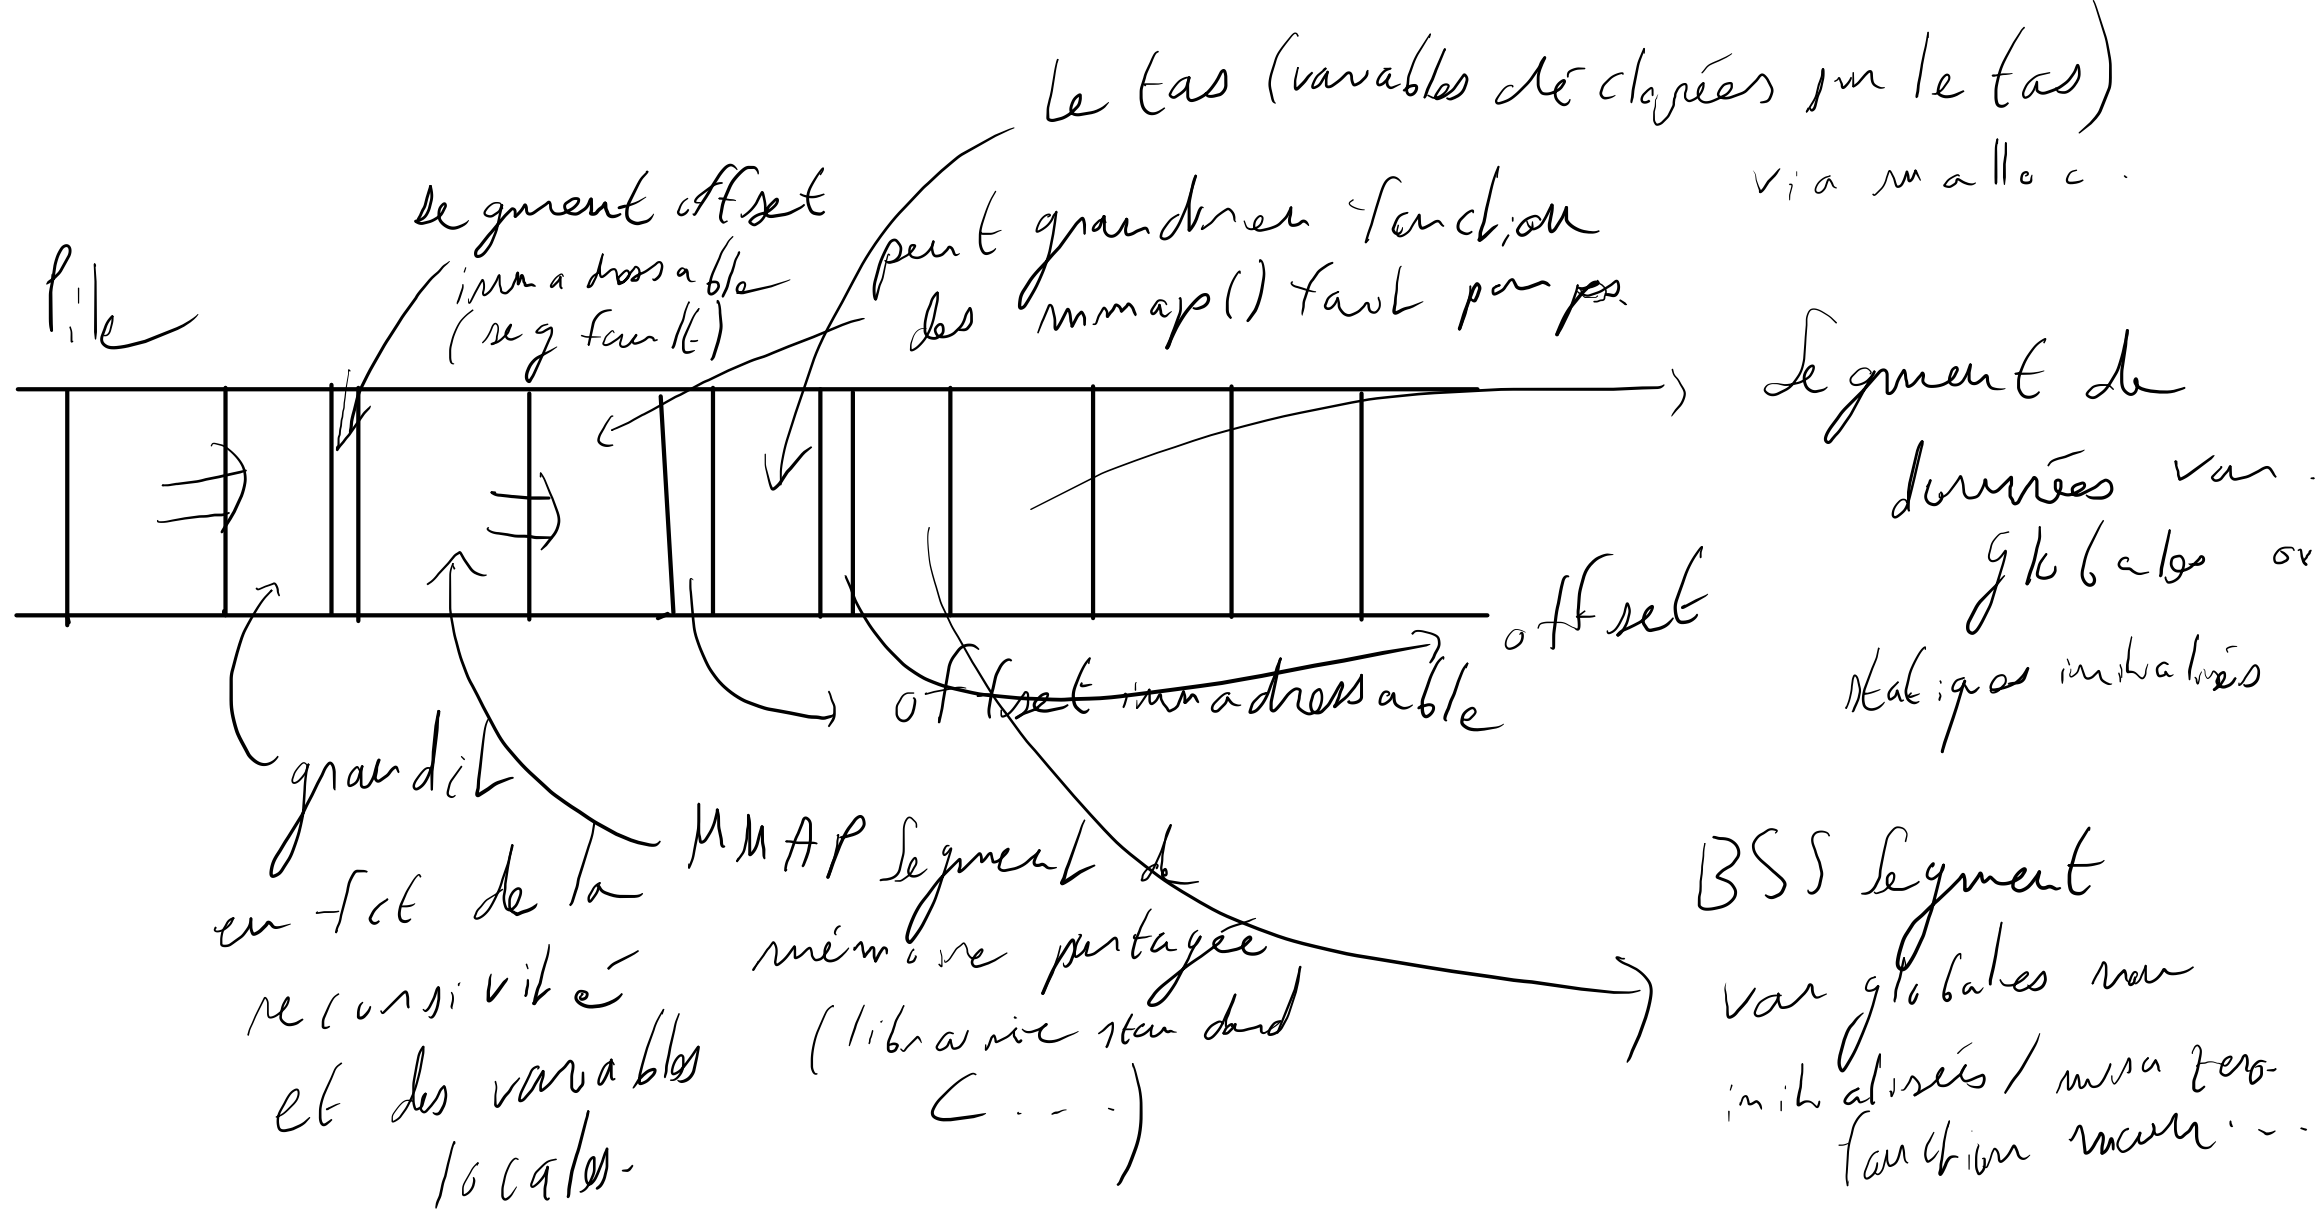 Le tas (variables déclarées sur le tas)
via malloc.
segment offset
inmadressable
(seg fault)
peut grandir en fonction
des mmap() faut pas
Pile
Segment de
données var.
globales ou
statiques initialisées
offset
offset inmadressable
grandit
en fct de la
recursivité
et des variables
locales.
MMAP Segment de
mémoire partagée
(librairie standard
C ...)
BSS Segment
var globales non
initialisées / mis a zero
fonction main...